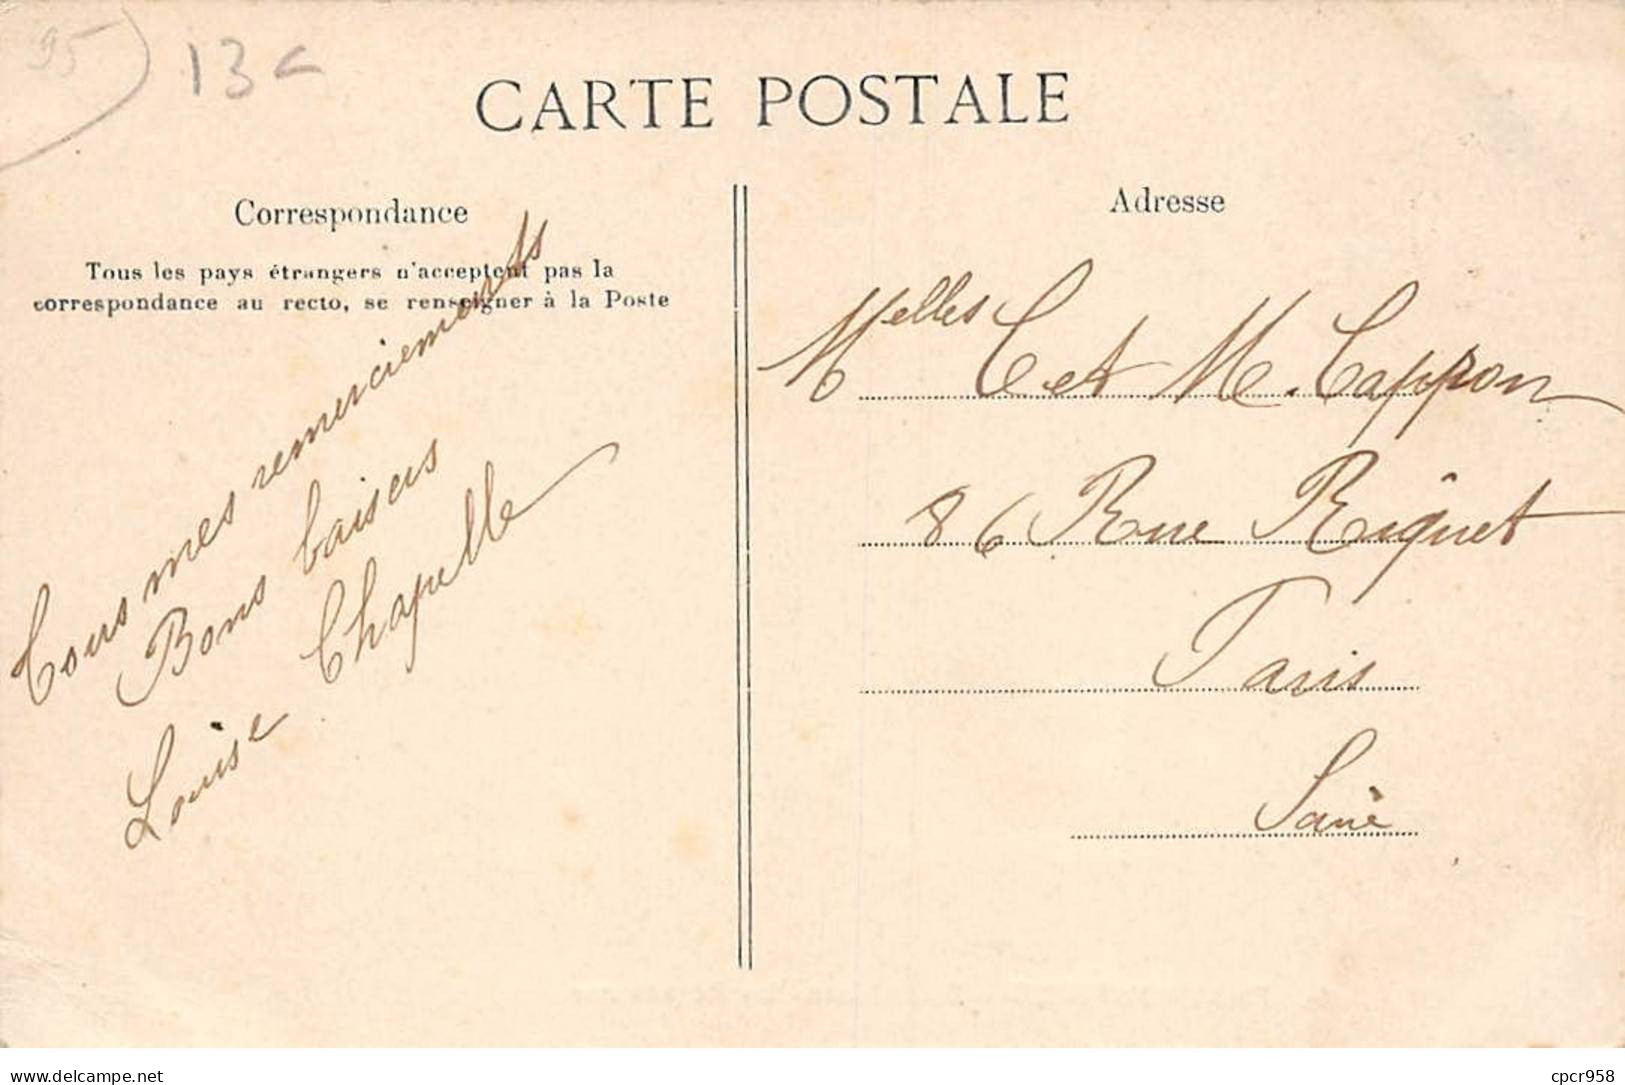 95
13c
CARTE POSTALE
Correspondance
Tous les pays étrangers n'acceptent pas la
correspondance au recto, se renseigner à la Poste
Tous mes remerciements
Bons baisers
Louise Chapelle
Adresse
Melles C et M. Cappron
86 Rue Riquet
Paris
Seine
delcampe.net
cpcr958